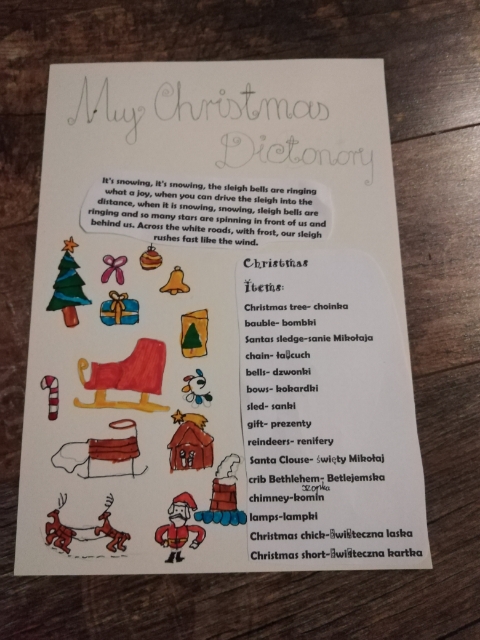 My Christmas
Dictonory
It's snowing, it's snowing, the sleigh bells are ringing
what a joy, when you can drive the sleigh into the
distance, when it is snowing, snowing, sleigh bells are
ringing and so many stars are spinning in front of us and
behind us. Across the white roads, with frost, our sleigh
rushes fast like the wind.
Christmas
Items:
Christmas tree- choinka
bauble- bombki
Santas sledge-sanie Mikołaja
chain- łańcuch
bells- dzwonki
bows- kokardki
sled- sanki
gift- prezenty
reindeers- renifery
Santa Clouse- święty Mikołaj
crib Bethlehem- Betlejemska
szopka
chimney-komin
lamps-lampki
Christmas chick-świąteczna laska
Christmas short-świąteczna kartka